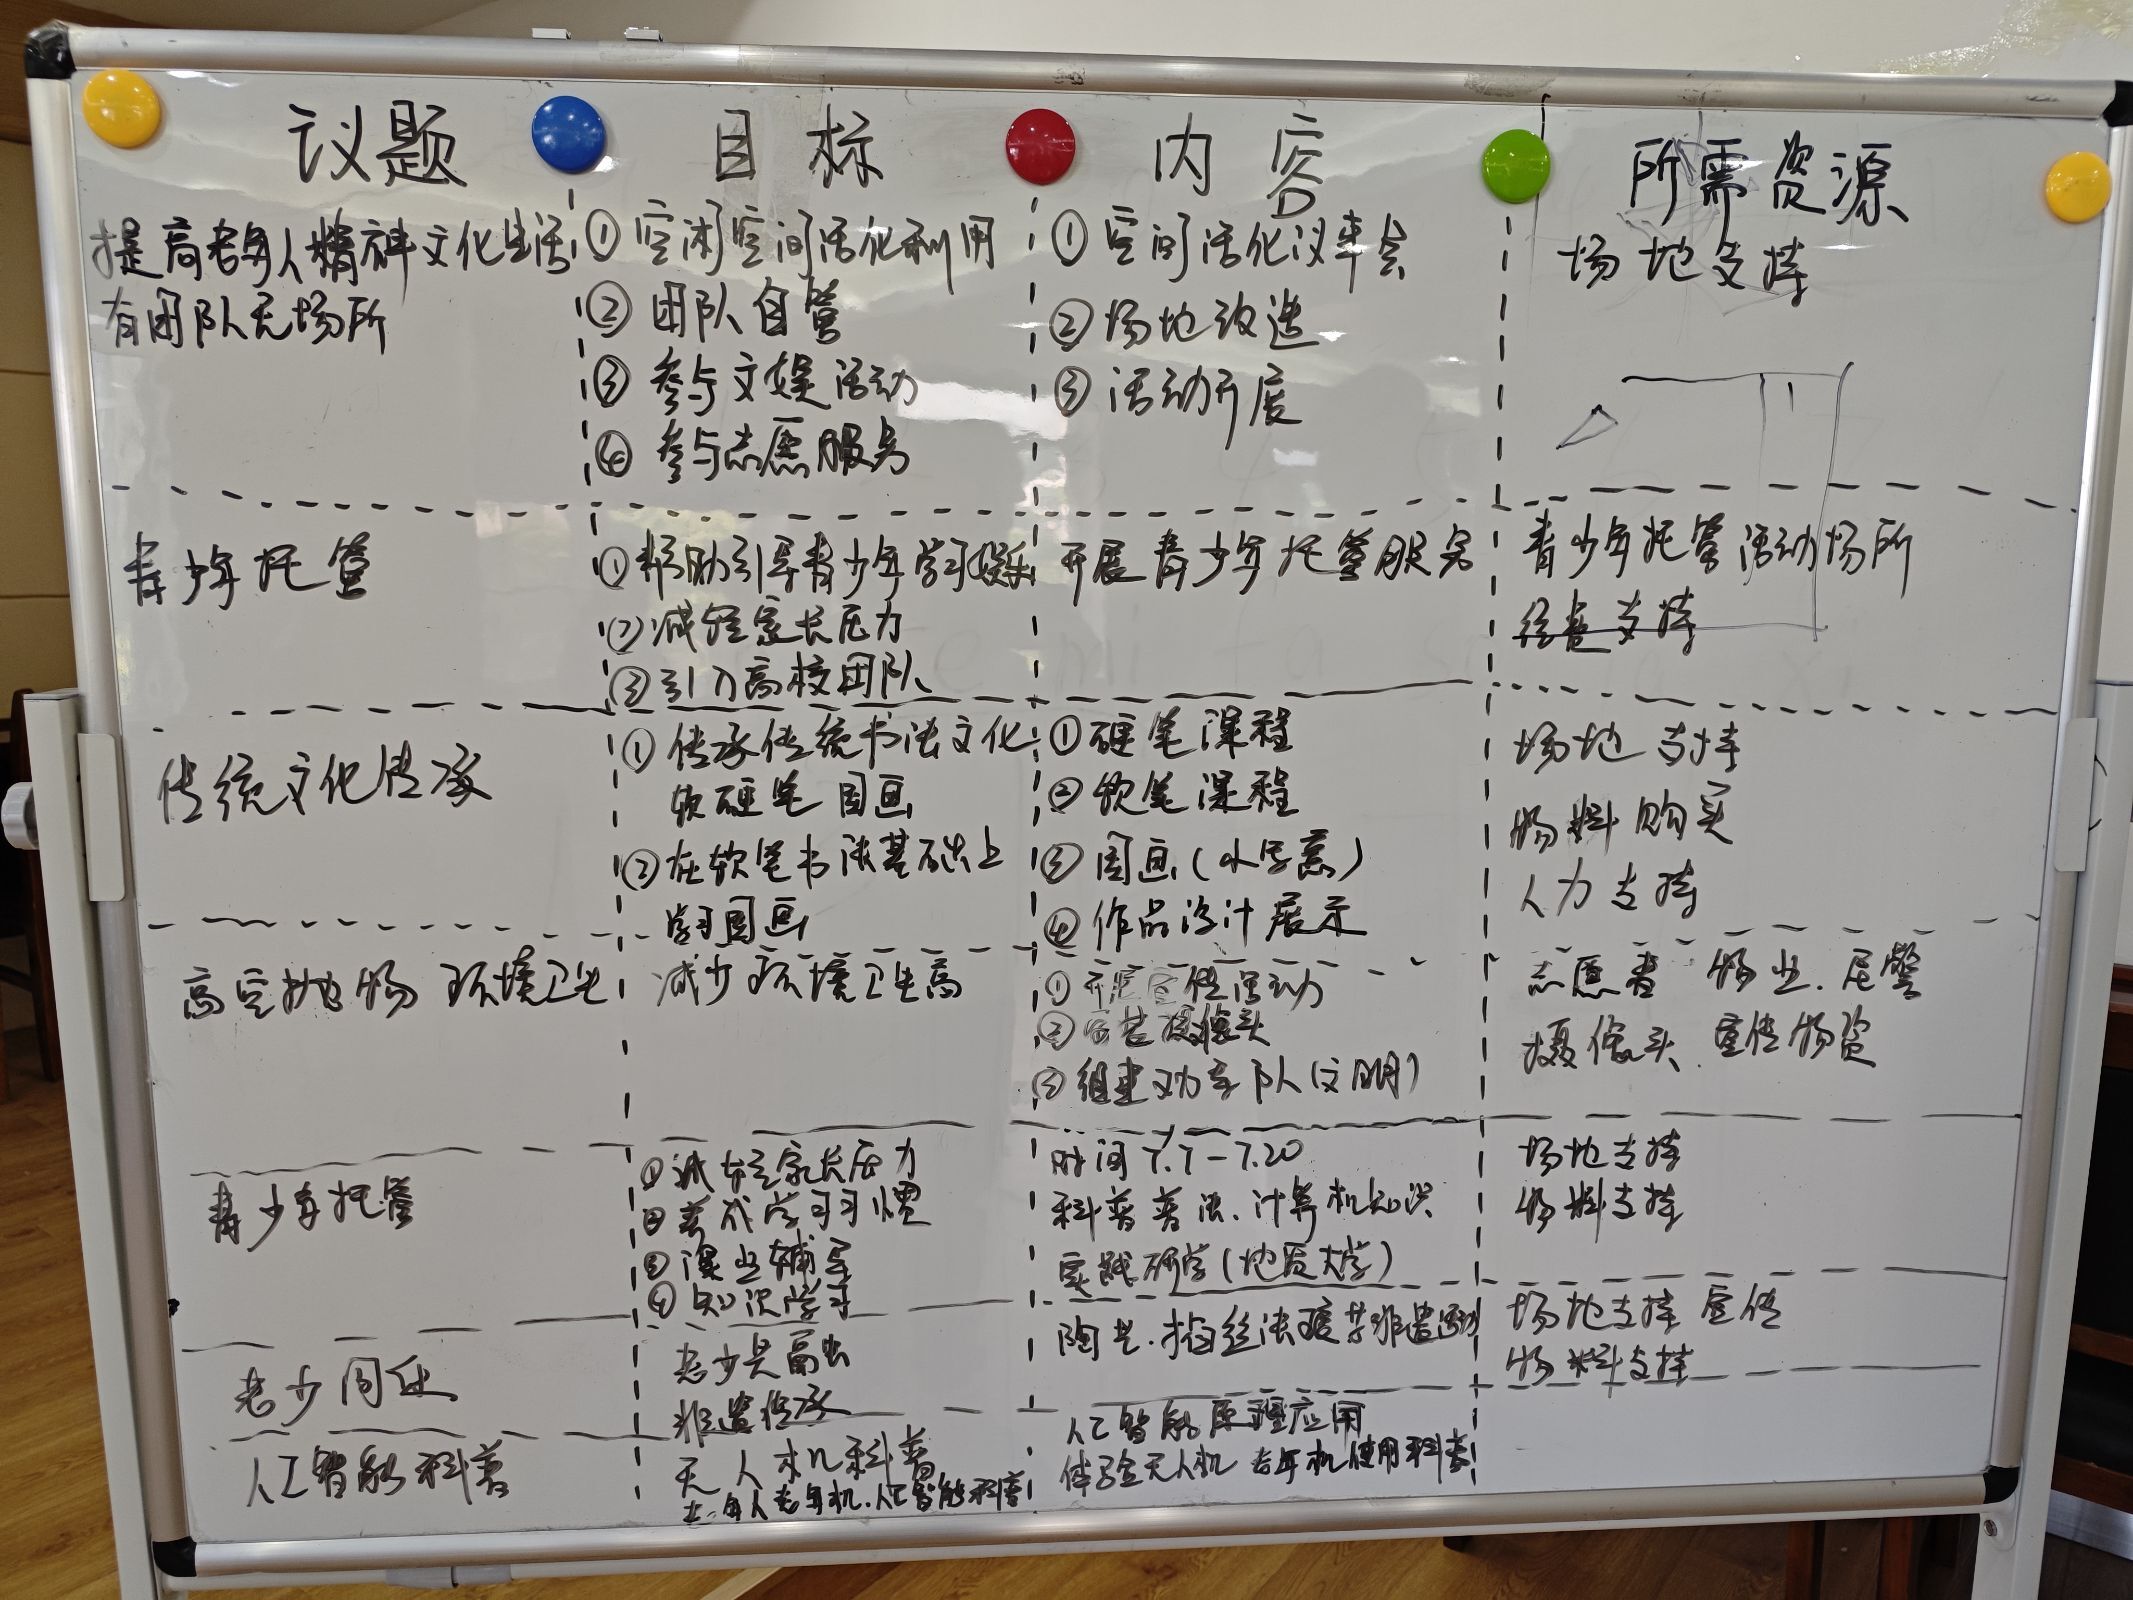 议题 目标 内容 所需资源
提高老年人精神文化生活
有团队无场所
① 空闲空间活化利用
② 团队自管
③ 参与文娱活动
④ 参与志愿服务
① 空间活化议事会
② 场地改造
③ 活动开展
场地支持
青少年托管
① 帮助引导青少年学习娱乐
② 减轻家长压力
③ 引入高校团队
开展青少年托管服务
青少年托管活动场所
经费支持
传统文化传承
① 传承传统书法文化
软硬笔 国画
② 在软笔书法基础上
学习国画
① 硬笔课程
② 软笔课程
③ 国画(小写意)
④ 作品设计展示
场地支持
物料购买
人力支持
高空抛物 环境卫生
减少环境卫生高
① 开展宣传活动
② 安装摄像头
③ 组建劝导队(文明)
志愿者 物业.民警
摄像头.宣传物资
青少年托管
① 减轻家长压力
② 养成学习习惯
③ 课业辅导
④ 知识学习
时间 7.7-7.20
科普普法.计算机知识
实践研学(地质大学)
场地支持
物料支持
老少同乐
老少共融
非遗传承
陶艺.掐丝法琅等非遗活动
场地支持 宣传
物料支持
人工智能科普
无人机科普
老年人老年机.人工智能科普
人工智能原理应用
体验无人机 老年机使用科普